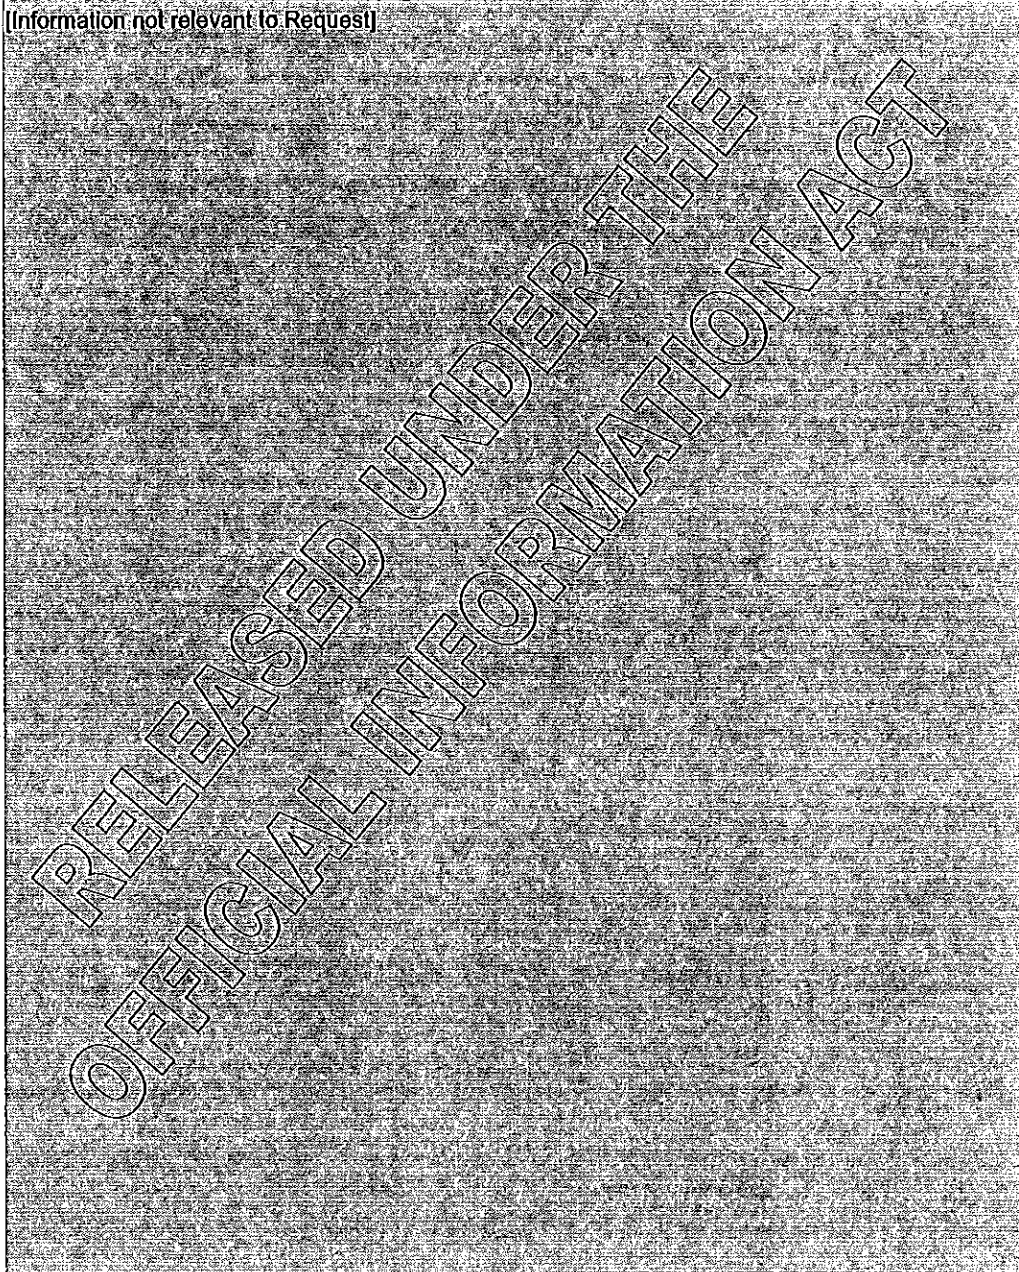 [Information not relevant to Request]
RELEASED UNDER THE
OFFICIAL INFORMATION ACT